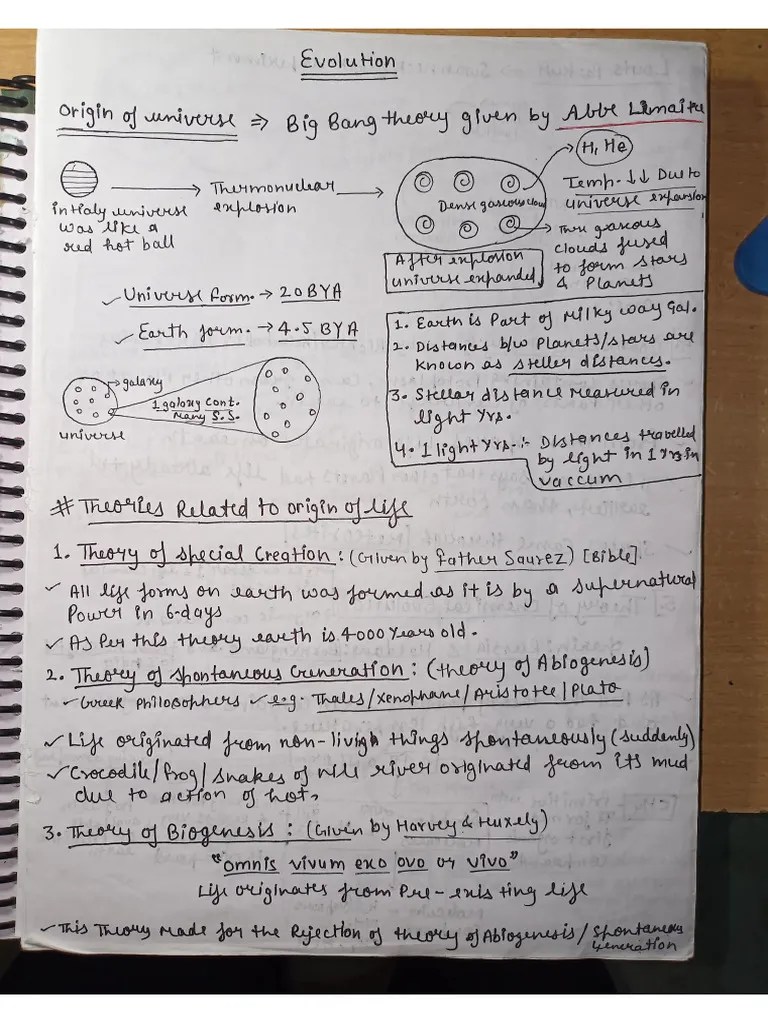 Evolution
Origin of universe ⇒ Big Bang theory given by Abbe Limaitre
H, He
Thermonuclear explosion
Dense gaseous cloud
Temp. ↓↓ Due to
universe expansion
initialy universe
was like a
red hot ball
These gaseous
clouds fused
to form stars
& Planets
After explosion
universe expanded
✓ Universe form. → 20 BYA
✓ Earth form. → 4.5 BYA
1. Earth is Part of Milky way Gal.
2. Distances b/w Planets/stars are
known as steller distances.
3. Stellar distance measured in
light yrs.
4. 1 light yrs. :- Distances travelled
by light in 1 yrs in
vaccum
galaxy
1 galaxy cont.
many S.S.
universe
# Theories Related to origin of life
1. Theory of special Creation : (Given by father Saurez) [Bible].
✓ All life forms on earth was formed as it is by a supernatural
Power in 6-days
✓ As Per this theory earth is 4000 years old.
2. Theory of spontaneous Generation : (theory of Abiogenesis)
✓ Greek Philosophers ✓ e.g. Thales/Xenophane/Aristotee/Plato
✓ Life originated from non-living things spontaneously (suddenly)
✓ Crocodile/frog/snakes of nile river originated from its mud
due to action of hot.
3. Theory of Biogenesis : (Given by Harvey & Huxely)
"omnis vivum exo ovo or vivo"
Life originates from Pre-existing life
✓ This Theory made for the Rejection of theory of Abiogenesis/Spontaneous
Generation